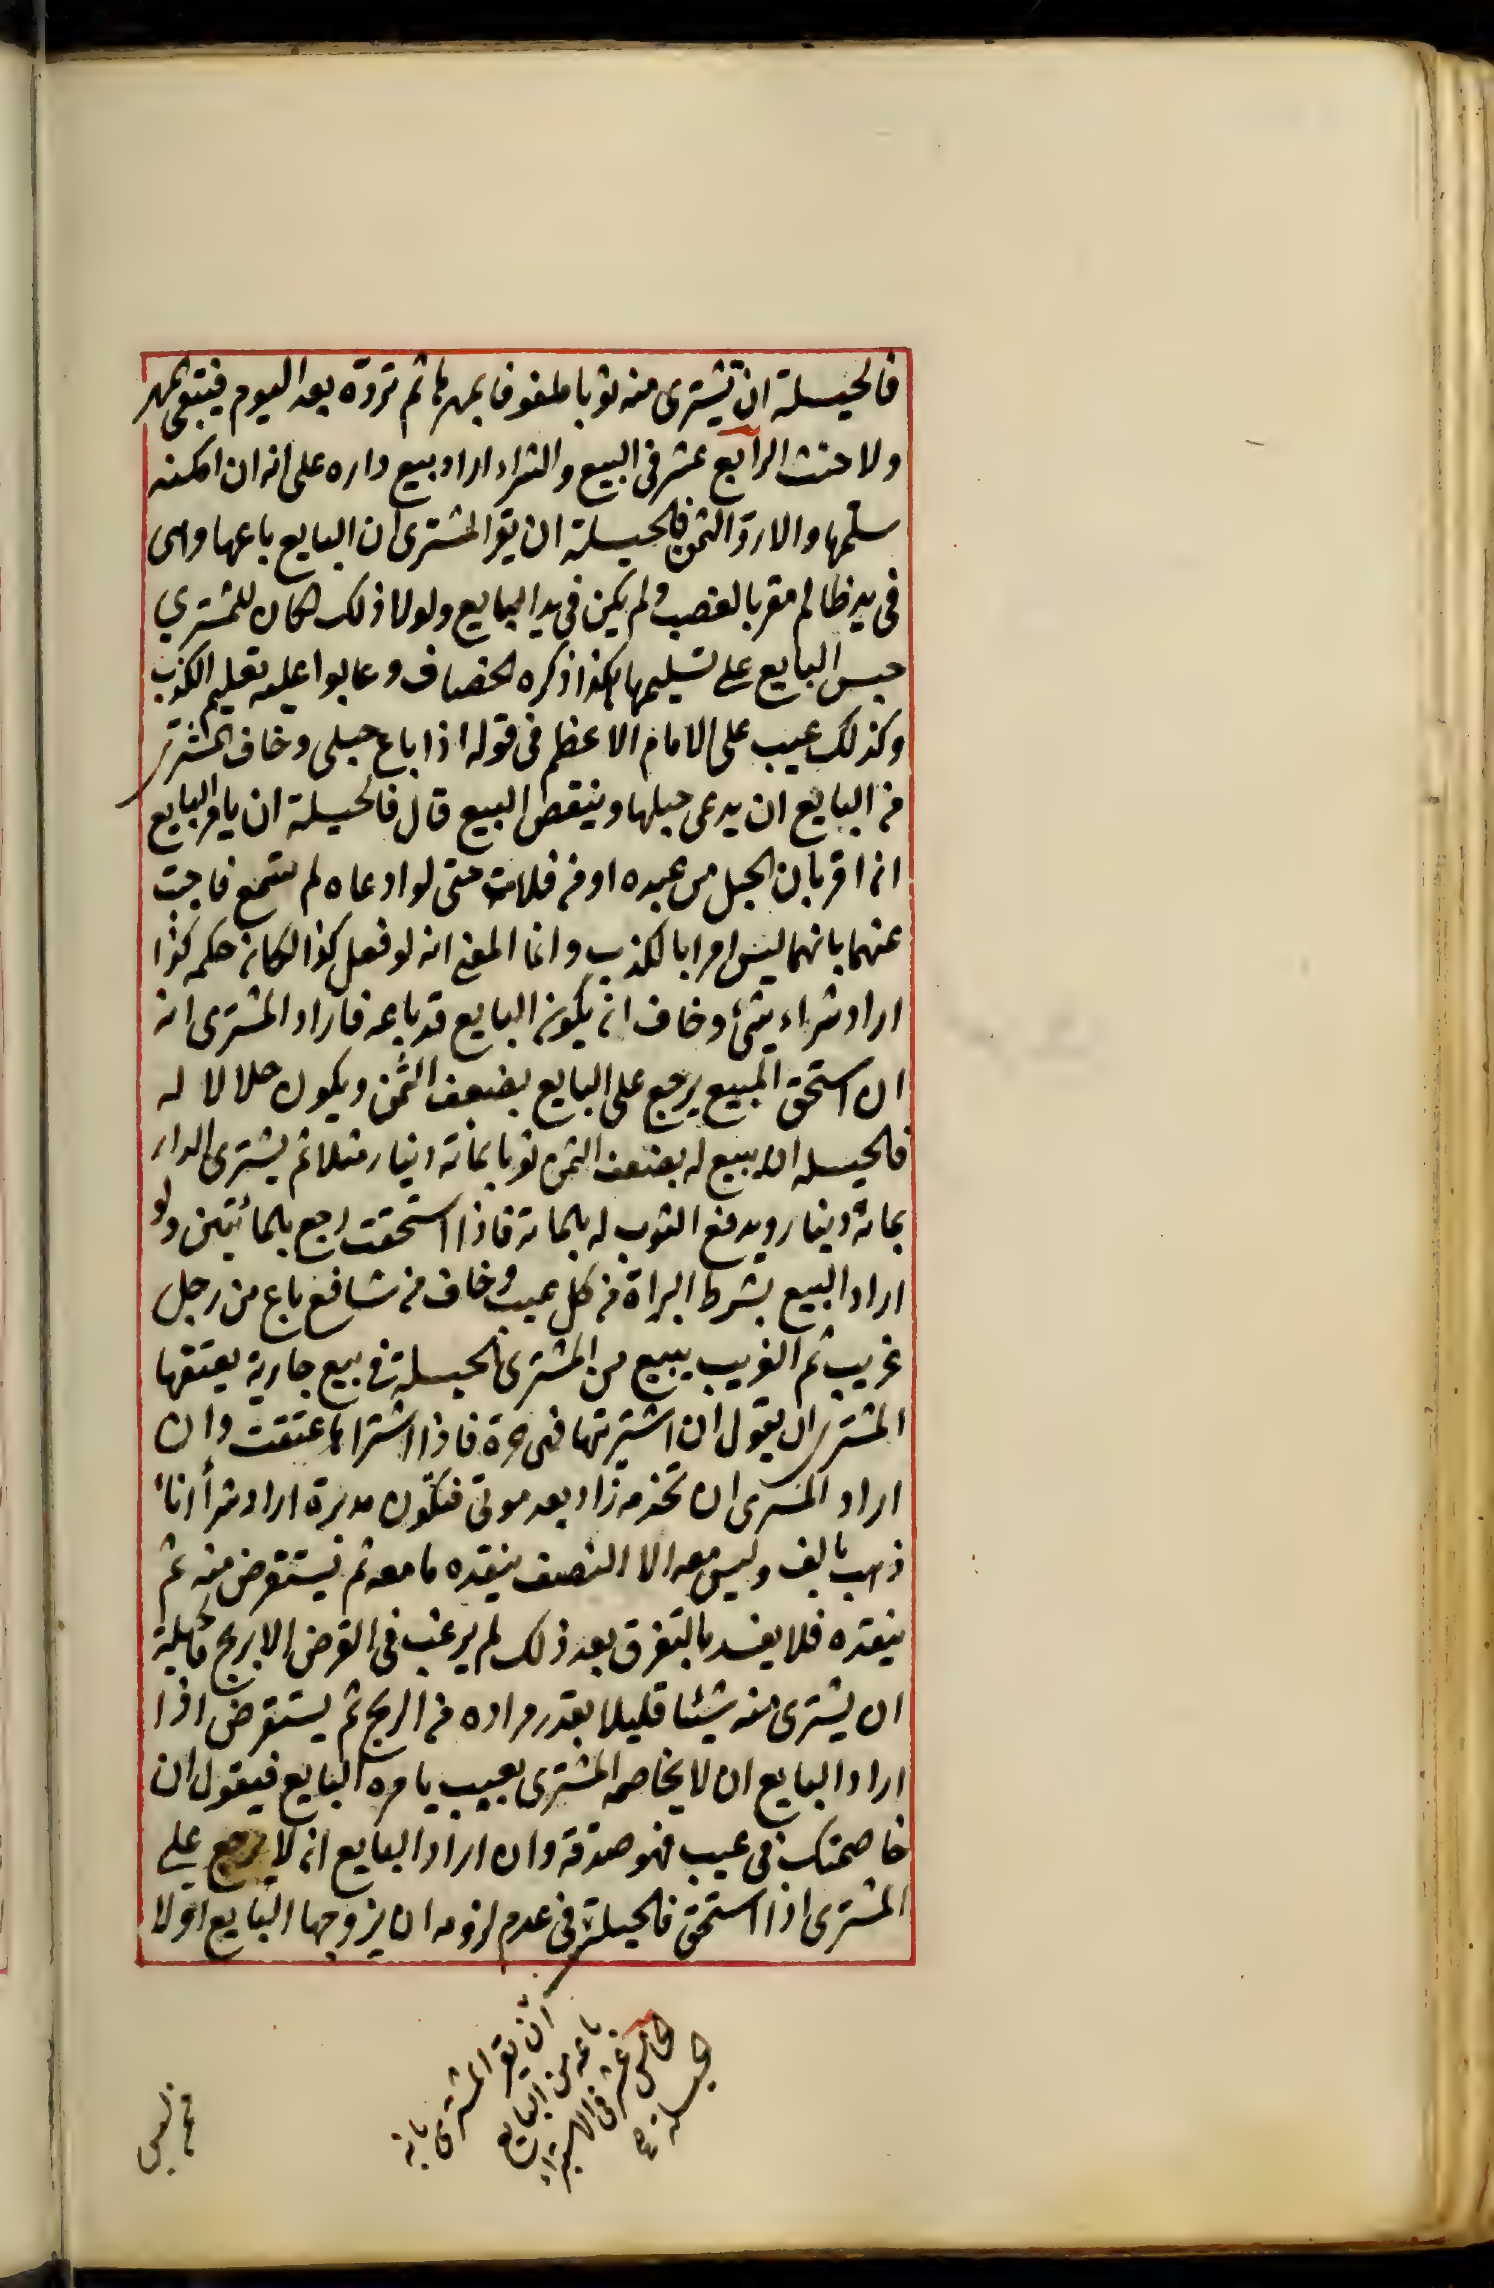 فالحيلة ان تشترى منه ثوبا ملفوفا بمهرها ثم تردّه بعد اليوم فيبقى المهر
ولا حنث الرابع عشر فى البيع والشراء اراد بيع داره على انه ان امكنه
سلّمها والا ردّ الثمن فالحيلة ان يقر المشترى ان البايع باعها وهى
فى يد ظالم مقر بالغصب ولم يكن فى يد البايع ولولا ذلك لكان للمشترى
حبس البايع على تسليمها هكذا ذكره الخصاف وعابوا عليه تعليم الكذب
وكذلك عيب على الامام الاعظم فى قوله اذا باع حبلى وخاف المشترى
من البايع ان يدعى حبلها وينقض البيع قال فالحيلة ان يامر البايع
ان اقر بان الحبل من عبده او من فلان حتى لو ادعاه لم تسمع فاجيب
عنهما بانهما ليس امرا بالكذب وانما المعنى انه لو فعل كذا لكان حكمه كذا
اراد شراء شئ وخاف ان يكون البايع قد باعه فاراد المشترى انه
ان استحق المبيع يرجع على البايع بضعف الثمن ويكون حلالا له
فالحيله ان يبيع له بضعف الثمن ثوبا بمائة دينار مثلا ثم يشترى الدار
بمائة دينار ويدفع الثوب له بالمائة فاذا استحقت رجع بالمائتين ولو
اراد البيع بشرط البراة من كل عيب وخاف من شافع باع من رجل
غريب ثم الغريب يبيع من المشترى الحيلة فى بيع جارية يعتقها
المشترى ان يقول ان اشتريتها فهى حرة فاذا اشتراها عتقت وان
اراد المشترى ان تخدمه زاد بعد موتى فتكون مدبرة اراد شرأ اناء
ذهب بالف وليس معه الا النصف ينقده ما معه ثم يستقرض منه ثم
ينقده فلا يفسد بالتفرق بعد ذلك لم يرغب فى القرض الا بربح فالحيلة
ان يشترى منه شيئا قليلا بقدر مراده من الربح ثم يستقرض اذا
اراد البايع ان لا يخاصمه المشترى بعيب يامره البايع فيقول ان
خاصمتك فى عيب فهو صدقة وان اراد البايع ان لا يرجع على
المشترى اذا استحق فالحيلة فى عدم لزومه ان يزوجها البايع اولا
ان يقر المشترى بانه
باعه من البايع
الخامس عشر فى الاستبراء
الحيلة